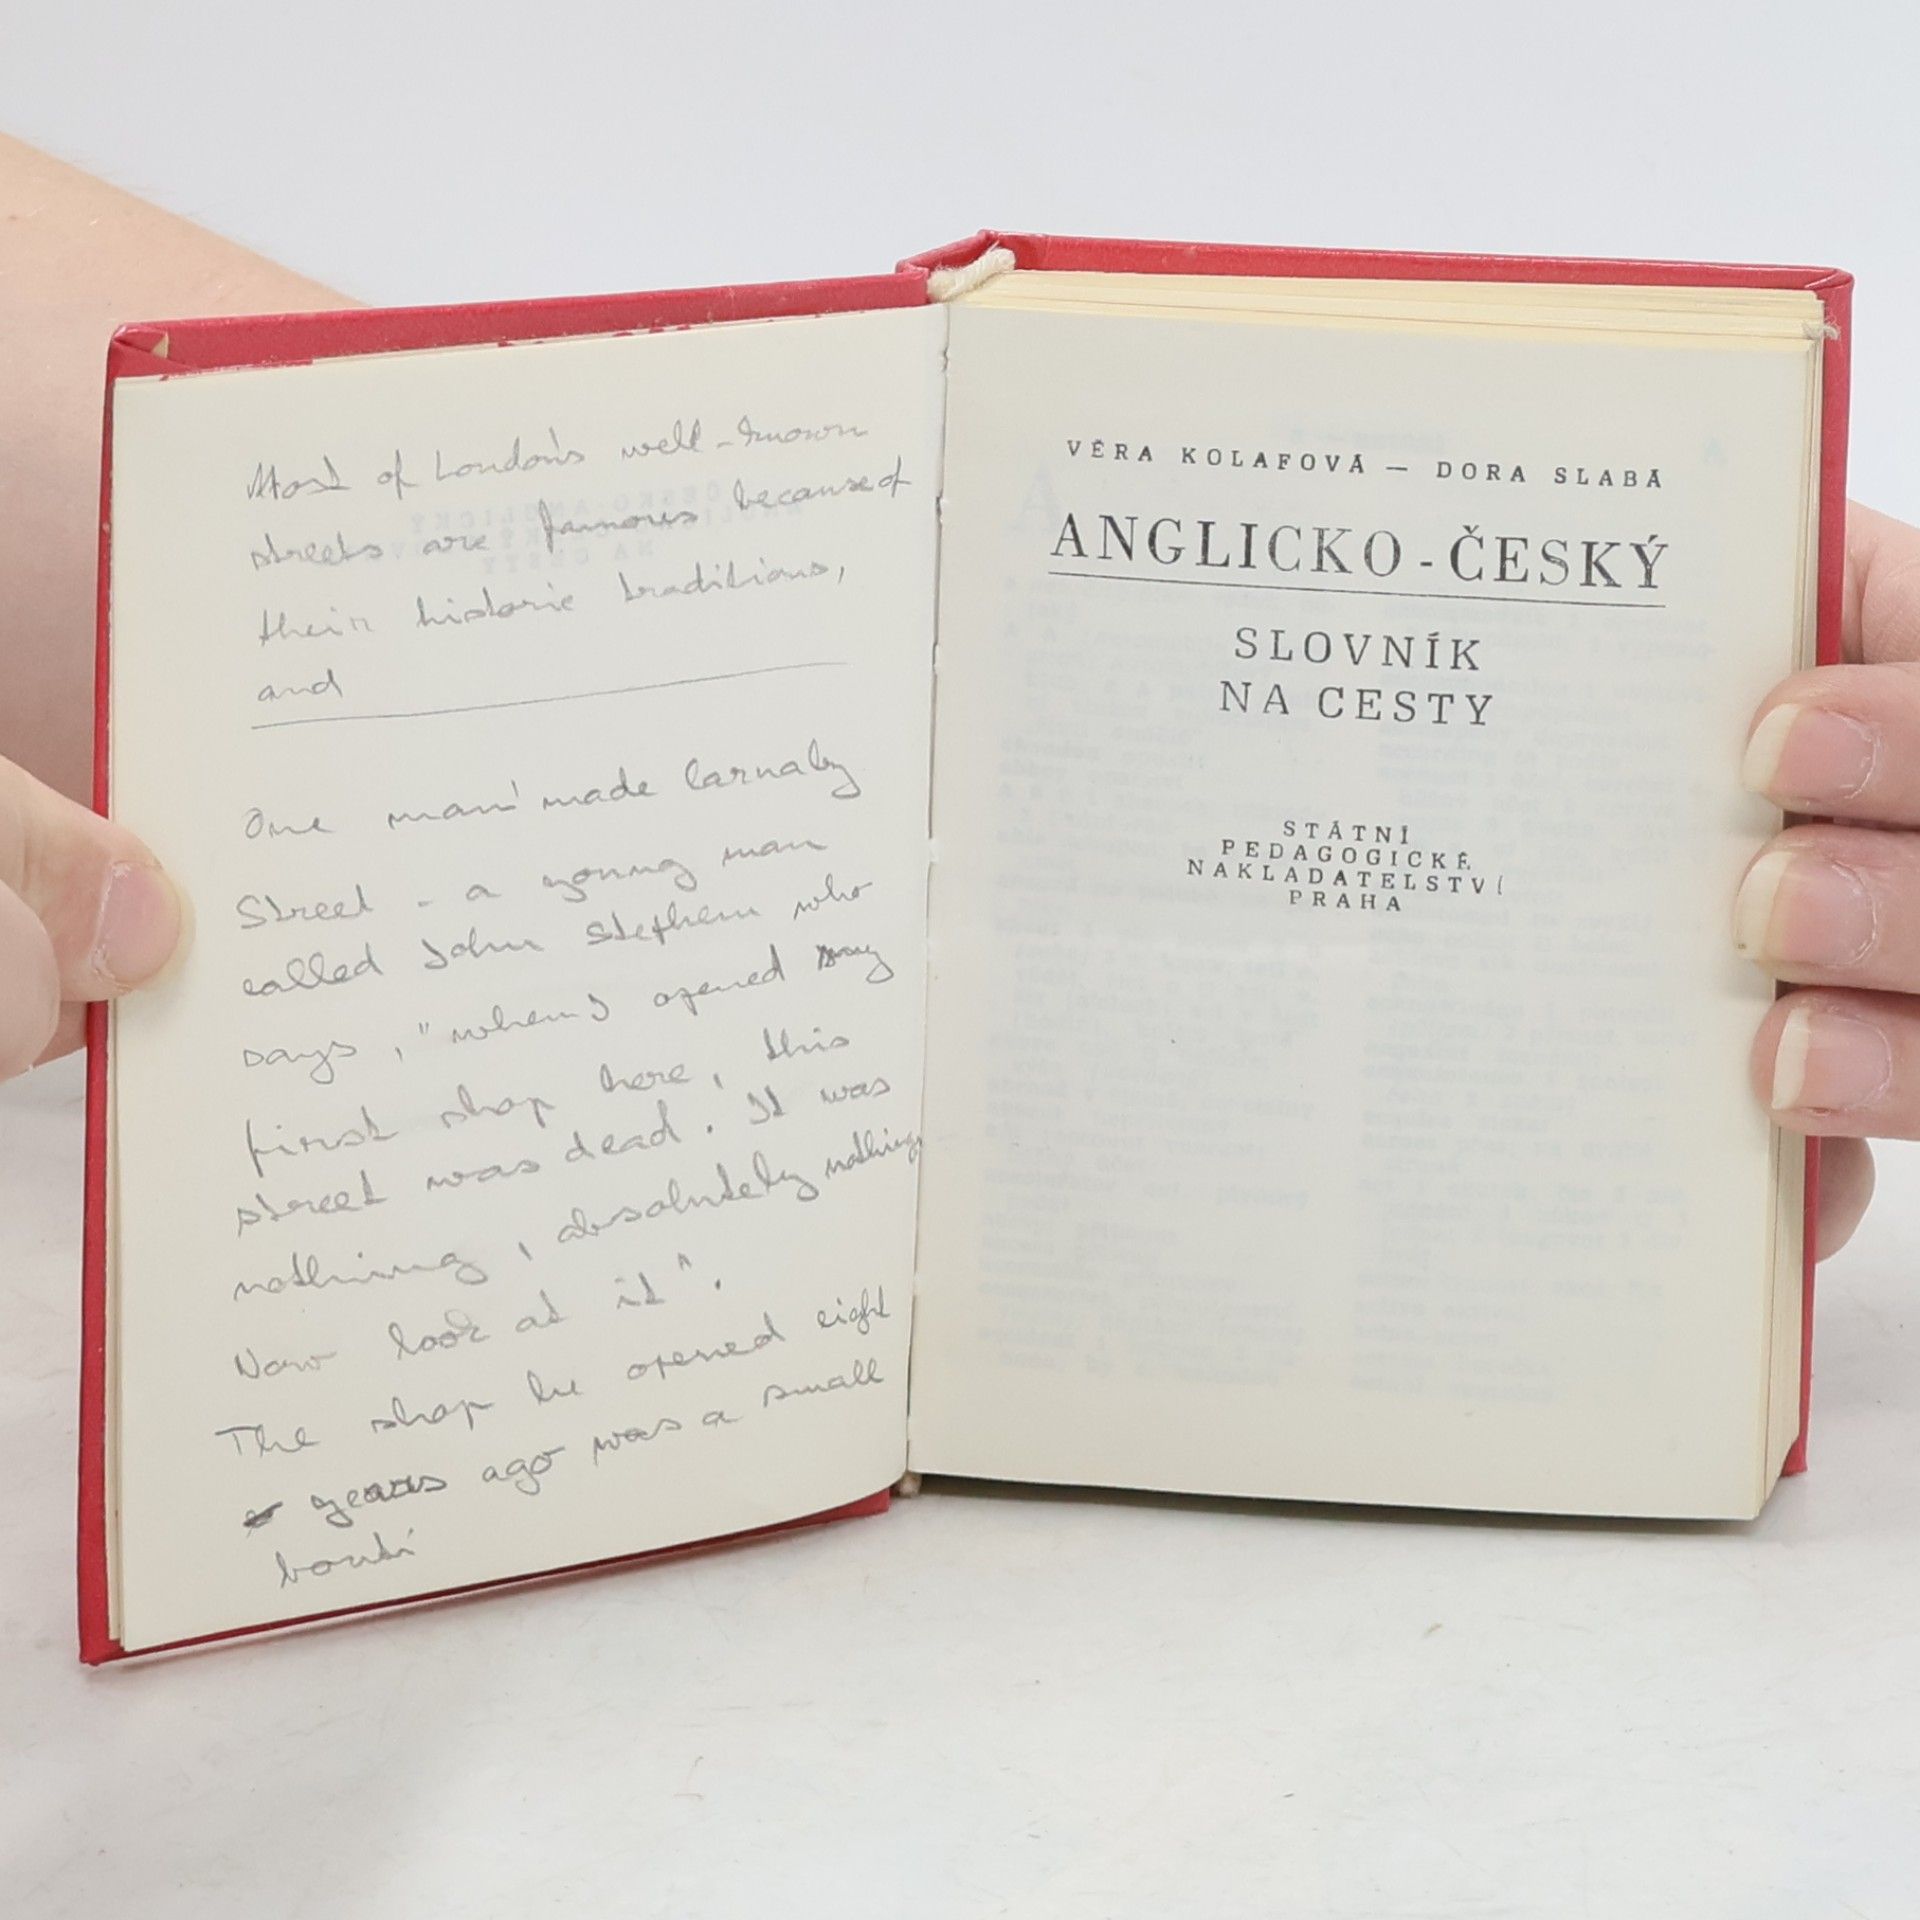 Most of London's well-known
streets are famous because of
their historic traditions,
and
One man' made Carnaby
Street - a young man
called John Stephen who
says, "when I opened my
first shop here, this
street was dead. It was
nothing, absolutely nothing,
Now look at it".
The shop he opened eight
years ago was a small
bouti
VĚRA KOLAFOVÁ — DORA SLABÁ
ANGLICKO-ČESKÝ
SLOVNÍK
NA CESTY
STÁTNÍ
PEDAGOGICKÉ
NAKLADATELSTVÍ
PRAHA